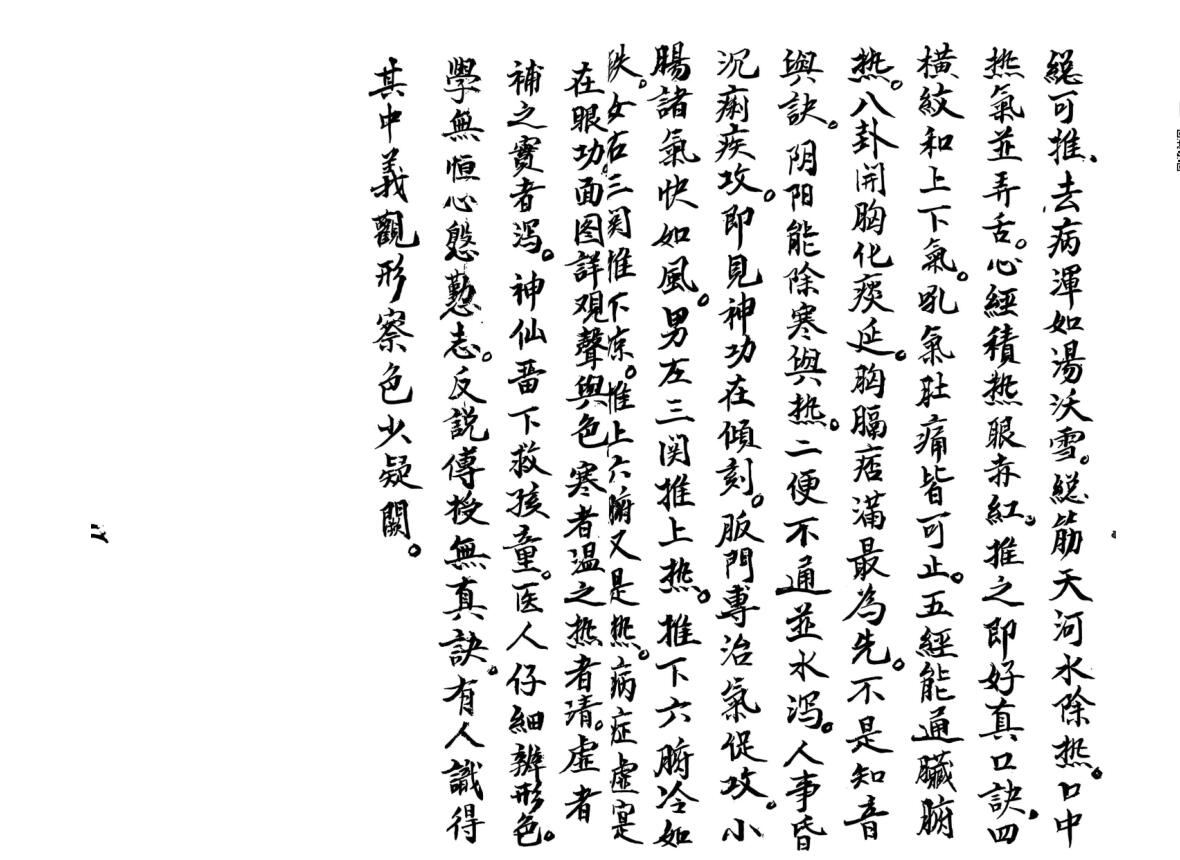 緫可推、去病渾如湯沃雪。緫筋天河水除热。口中
热氣並弄舌。心經積热眼赤紅。推之即好真口訣。四
横紋和上下氣。吼氣肚痛皆可止。五經能通臟腑
热。八卦開胸化痰延。胸膈痞滿最為先。不是知音
與訣。阴阳能除寒與热。二便不通並水泻。人事昏
沉痢疾攻。即見神功在傾刻。版門專治氣促攻。小
腸諸氣快如風。男左三関推上热。推下六腑冷如
鉄。女右三関推下凉。推上六腑又是热。病症虛寔
在眼功。面图詳观聲與色寒者温之热者清。虛者
補之實者泻。神仙畱下救孩童。医人仔細辨形色。
學無恒心慇懃志。反說傳授無真訣。有人識得
其中義觀形察色少疑闕。